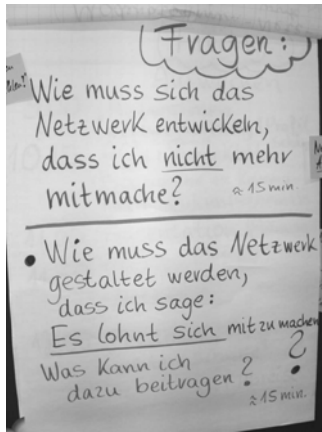 Fragen:
Wie muss sich das
Netzwerk entwickeln,
dass ich nicht mehr
mitmache?
≈ 15 min.
• Wie muss das Netzwerk
gestaltet werden,
dass ich sage:
Es lohnt sich mitzumachen
?
Was kann ich
dazu beitragen?
≈ 15 min.